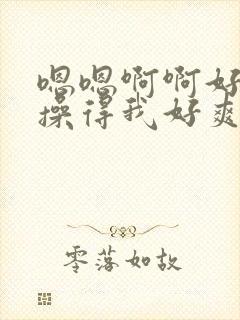 嗯嗯啊啊好
操得我好爽
零落如故